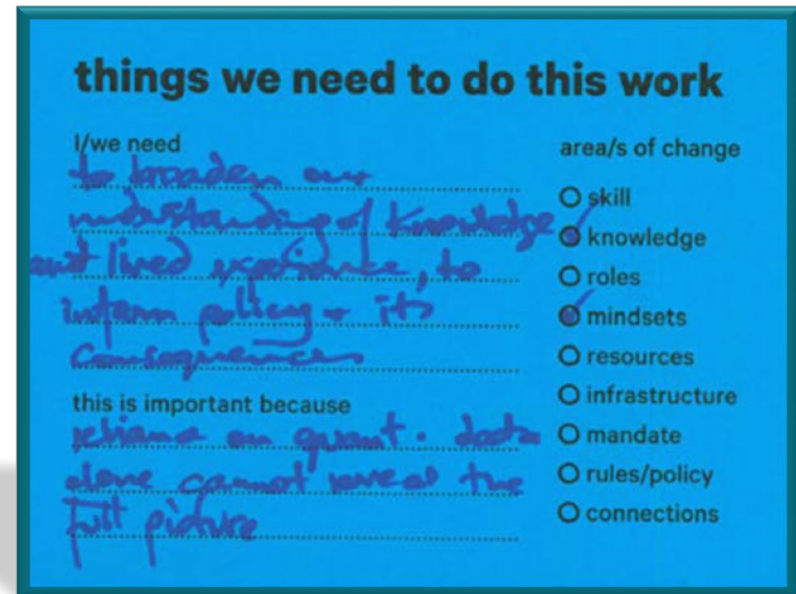 things we need to do this work
I/we need
to broaden our
understanding of knowledge
and lived experience, to
inform policy + its
consequences
this is important because
reliance on quant. data
alone cannot reveal the
full picture
area/s of change
skill
knowledge
roles
mindsets
resources
infrastructure
mandate
rules/policy
connections